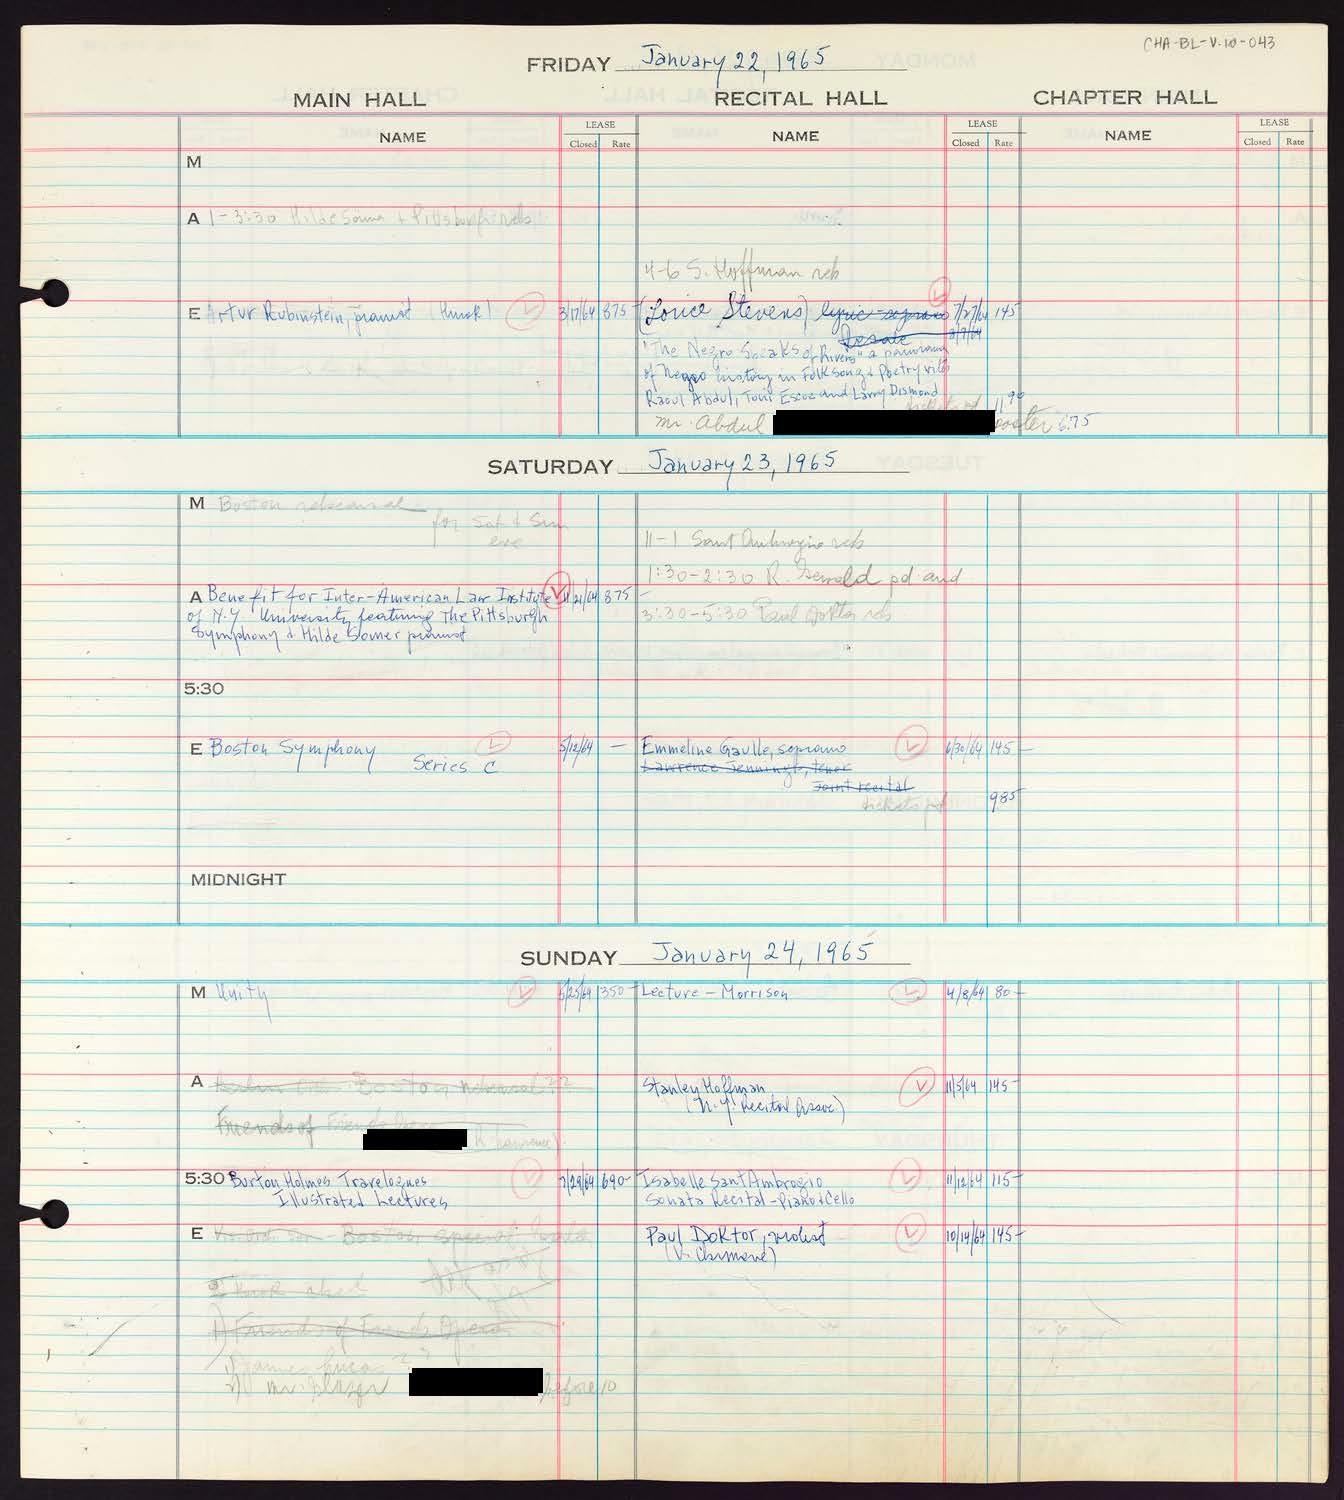 CHA-BL-V.10-043
FRIDAY January 22, 1965
MAIN HALL RECITAL HALL CHAPTER HALL
NAME LEASE NAME LEASE NAME LEASE
Closed Rate Closed Rate Closed Rate
M
A 1-3:30 Hilde Somer + Pittsburgh reh
4-6 S. Hoffman reh
E Artur Rubinstein, pianist (Hurok) 3/17/64 875- (Lorice Stevens) lyric soprano 7/27/64 145
"The Negro Speaks of Rivers" a panorama
of Negro history in Folk Song & Poetry with
Raoul Abdul, Toni Escoe and Larry Dismond
tickets pd 11 90
Mr. Abdul poster 6.75
SATURDAY January 23, 1965
M Boston rehearsal
for Sat & Sun
eve
11-1 Sant Ambrogio reh
1:30-2:30 R. pd and
A Benefit for Inter-American Law Institute 11/21/64 875-
3:30-5:30 Paul Doktor reh
of N.Y. University featuring The Pittsburgh
Symphony & Hilde Somer pianist
5:30
E Boston Symphony 5/12/64 - Emmeline Gaulle, soprano 6/30/64 145-
Series C Lawrence Jennings, tenor
Joint recital
tickets pd 985
MIDNIGHT
SUNDAY January 24, 1965
M Unity 5/25/64 350- Lecture - Morrison 4/8/64 80-
A Boston rehearsal ?? Stanley Hoffman 11/5/64 145-
(N.Y. Recital Assoc)
Friends of
5:30 Burton Holmes Travelogues 7/29/64 690- Isabelle Sant Ambrogio 11/12/64 115-
Illustrated Lectures Sonata Recital - Piano & Cello
E Boston Paul Doktor, violist 10/14/64 145-
Friends of French Opera
James Lucas ??
before 10